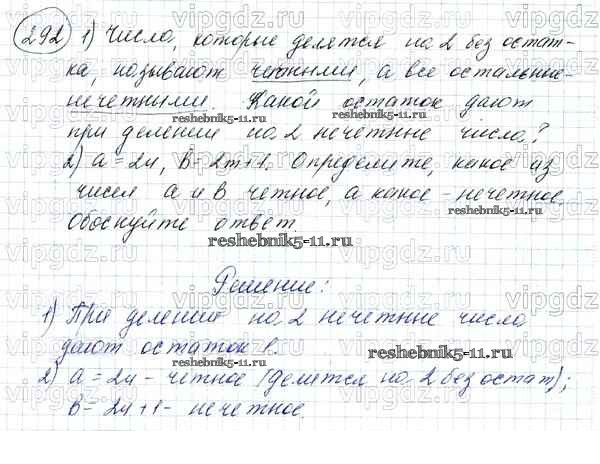 292 1) Числа, которые делятся на 2 без остат-
ка, называют чётными, а все остальные-
нечетными. Какой остаток дают
при делении на 2 нечетные числа?
2) a = 2n, b = 2m+1. Определите, какое из
чисел a и b четное, а какое - нечетное.
Обоснуйте ответ.
Решение:
1) При делении на 2 нечетные числа
дают остаток 1.
2) a = 2n - четное (делится на 2 без остат);
b = 2n + 1 - нечетное.
vipgdz.ru
reshebnik5-11.ru